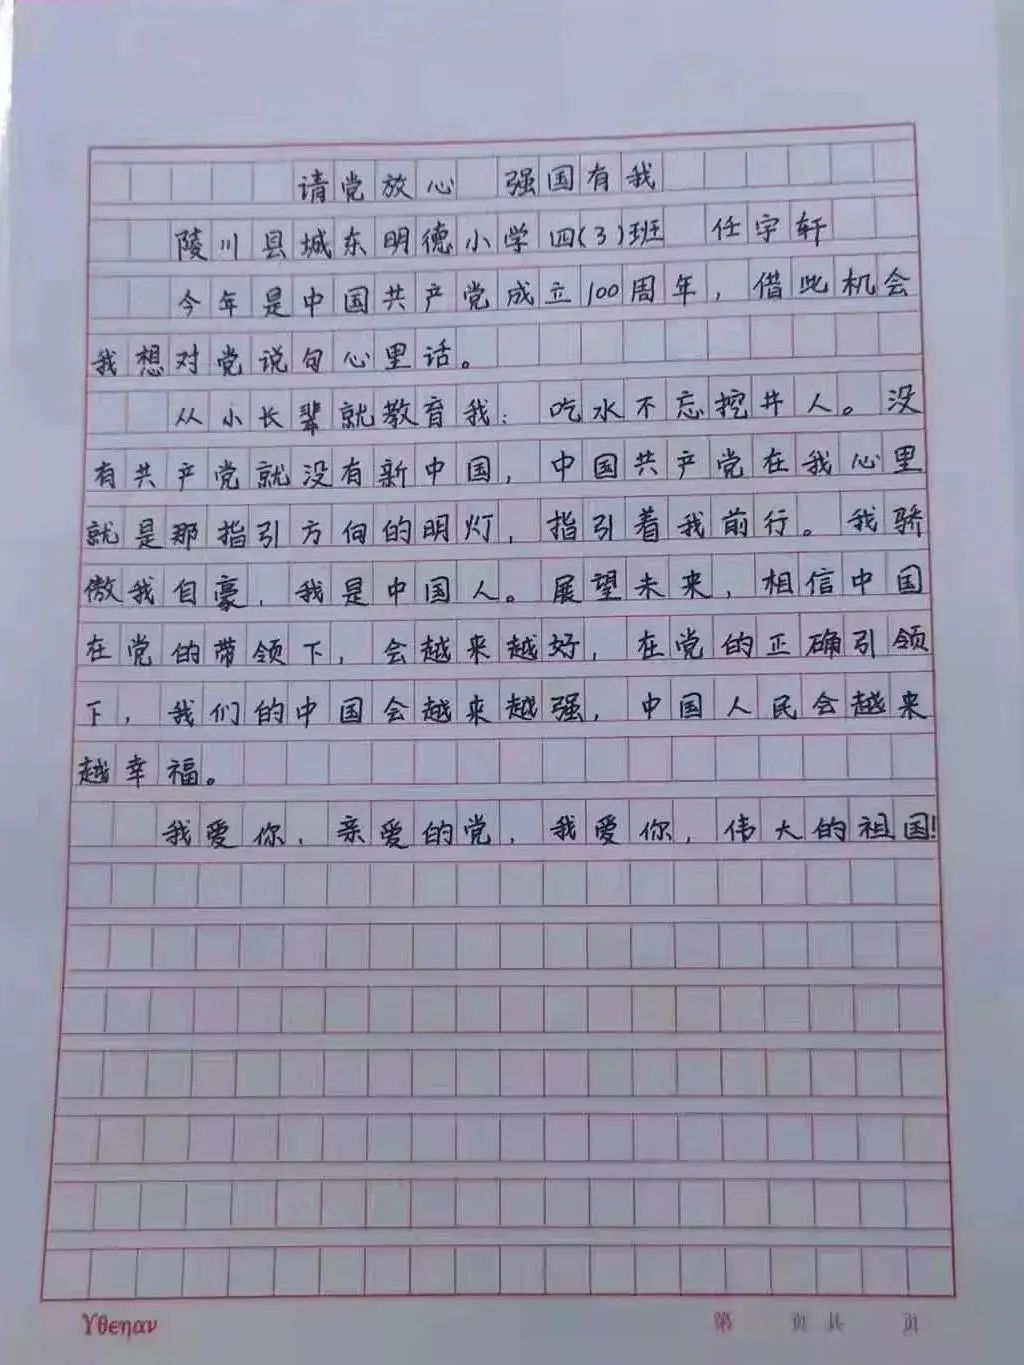 请党放心 强国有我
陵川县城东明德小学四(3)班 任宇轩
今年是中国共产党成立100周年，借此机会
我想对党说句心里话。
从小长辈就教育我：吃水不忘挖井人。没
有共产党就没有新中国，中国共产党在我心里
就是那指引方向的明灯，指引着我前行。我骄
傲我自豪，我是中国人。展望未来，相信中国
在党的带领下，会越来越好，在党的正确引领
下，我们的中国会越来越强，中国人民会越来
越幸福。
我爱你，亲爱的党，我爱你，伟大的祖国！
Yθεηαν
第 页 共 页